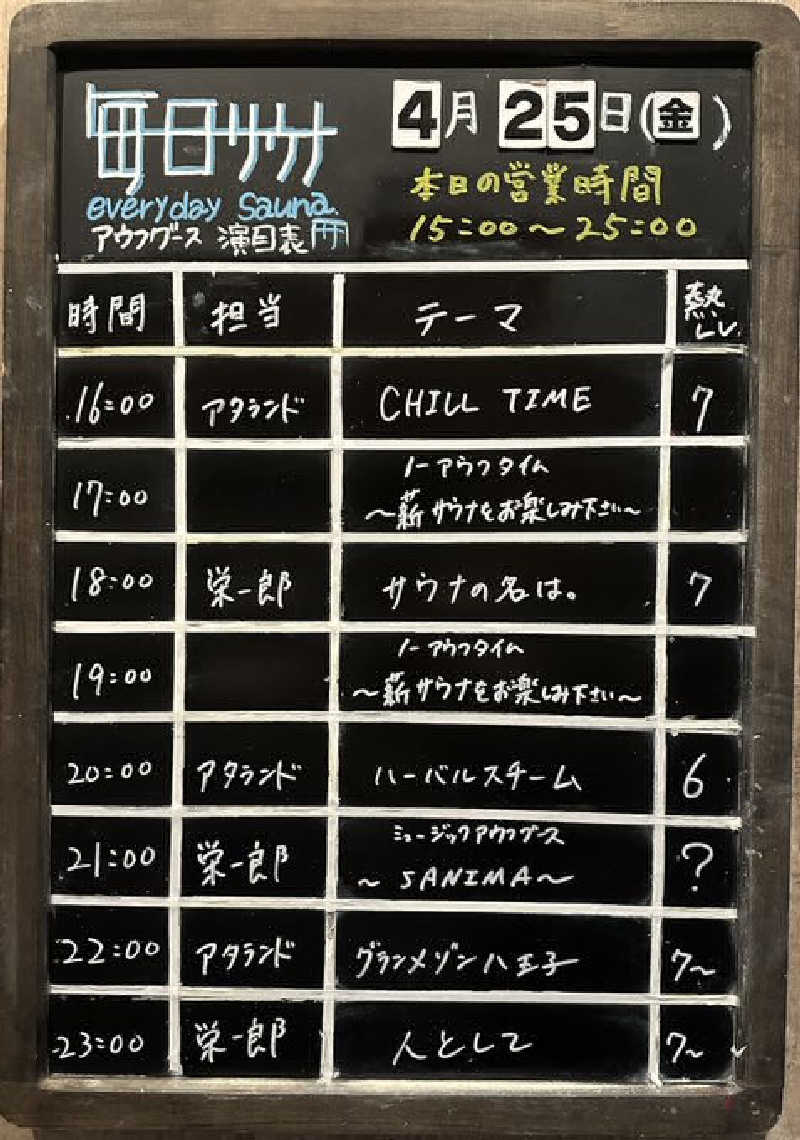 毎日サウナ
4月25日(金)
everyday Sauna
アウフグース 演目表
本日の営業時間
15:00～25:00
時間 担当 テーマ 熱LV.
16:00 アタランド CHILL TIME 7
17:00 ノーアウフタイム
～薪サウナをお楽しみ下さい～
18:00 栄一郎 サウナの名は。 7
19:00 ノーアウフタイム
～薪サウナをお楽しみ下さい～
20:00 アタランド ハーバルスチーム 6
21:00 栄一郎 ミュージックアウフグース ?
～SANIMA～
22:00 アタランド グランメゾン八王子 7～
23:00 栄一郎 人として 7～